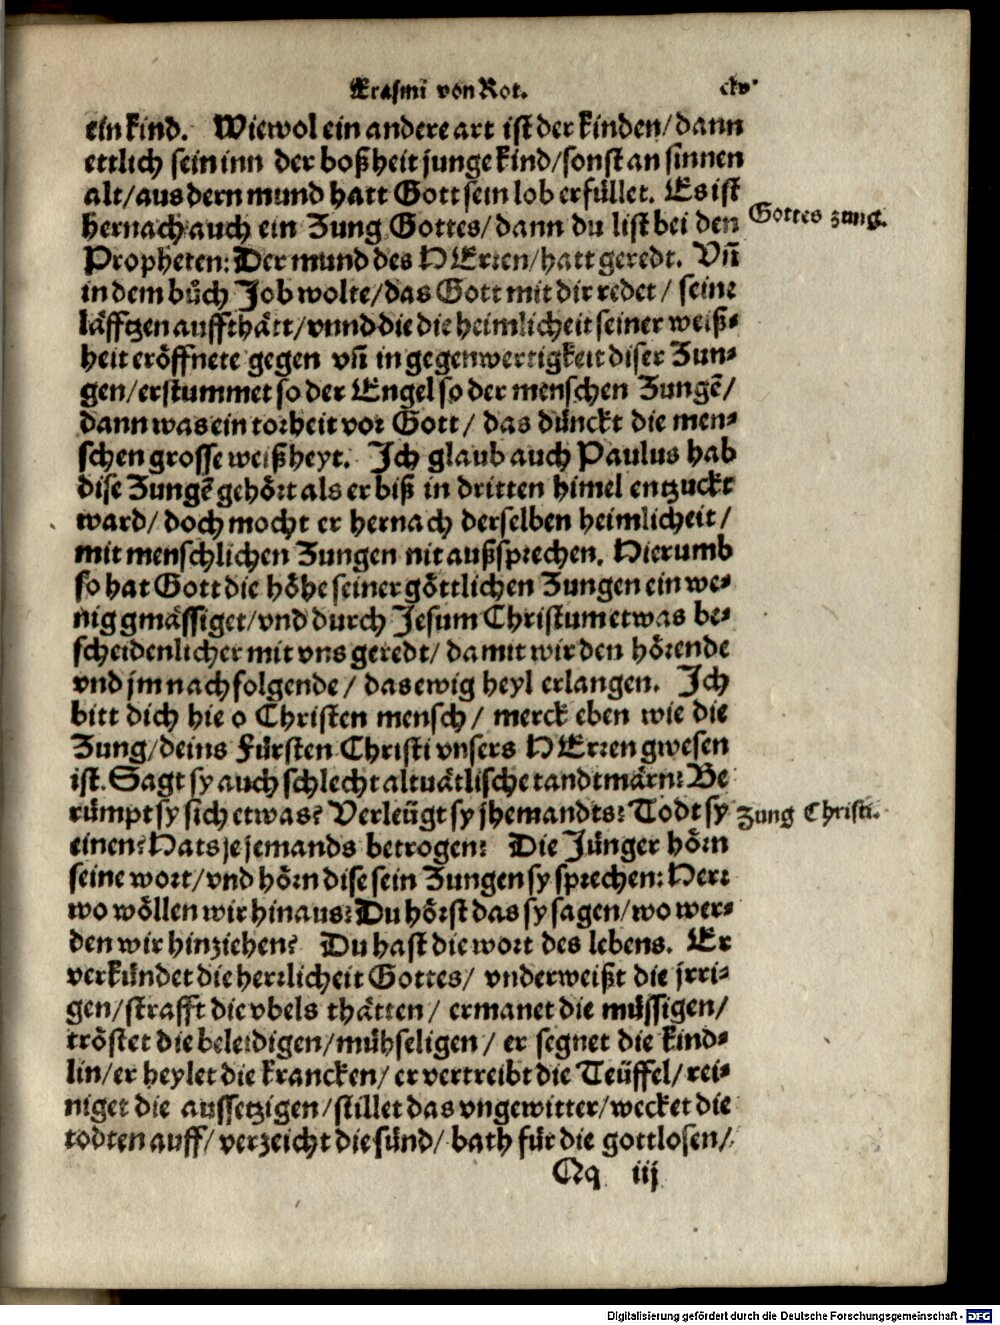 Erasmi von Rot. clv.
ein kind. Wiewol ein andere art ist der kinden/ dann
ettlich sein inn der boßheit junge kind/ sonst an sinnen
alt/ aus dern mund hatt Gott sein lob erfüllet. Es ist
hernach auch ein Zung Gottes/ dann du list bei den
Gottes zung.
Propheten: Der mund des HErren/ hatt geredt. Vñ
in dem bůch Job wolte/ das Gott mit dir redet/ seine
läfftzen auffthätt/ vnnd die die heimlicheit seiner weiß⸗
heit eröffnete gegen vñ in gegenwertigkeit diser Zun⸗
gen/ erstummet so der Engel so der menschen Zungē/
dann was ein torheit vor Gott/ das dünckt die men⸗
schen grosse weißheyt. Ich glaub auch Paulus hab
dise Zungē gehört als er biß in dritten himel entzuckt
ward/ doch mocht er hernach derselben heimlicheit/
mit menschlichen Zungen nit außsprechen. Hierumb
so hat Gott die höhe seiner göttlichen Zungen ein we⸗
nig gmässiget/ vnd durch Jesum Christum etwas be⸗
scheidenlicher mit vns geredt/ damit wir den hörende
vnd jm nachfolgende/ das ewig heyl erlangen. Ich
bitt dich hie o Christen mensch/ merck eben wie die
Zung/ deins Fürsten Christi vnsers HErren gwesen
ist. Sagt sy auch schlecht altuätlische tandtmärn? Be
rümpt sy sich etwas? Verleügt sy jhemandts? Todt sy
Zung Christi.
einen? Hats je jemands betrogen? Die Jünger hörn
seine wort/ vnd hörn dise sein Zungen sy sprechen: Herr
wo wöllen wir hinaus? Du hörst das sy sagen/ wo wer⸗
den wir hinziehen? Du hast die wort des lebens. Er
verkündet die herrlicheit Gottes/ vnderweißt die jrri⸗
gen/ strafft die vbels thätten/ ermanet die müssigen/
tröstet die beleidigen/ mühseligen/ er segnet die kind⸗
lin/ er heylet die krancken/ er vertreibt die Teüffel/ rei⸗
niget die aussetzigen/ stillet das vngewitter/ wecket die
todten auff/ verzeicht die sünd/ bath für die gottlosen/
Qq iij
Digitalisierung gefördert durch die Deutsche Forschungsgemeinschaft - DFG